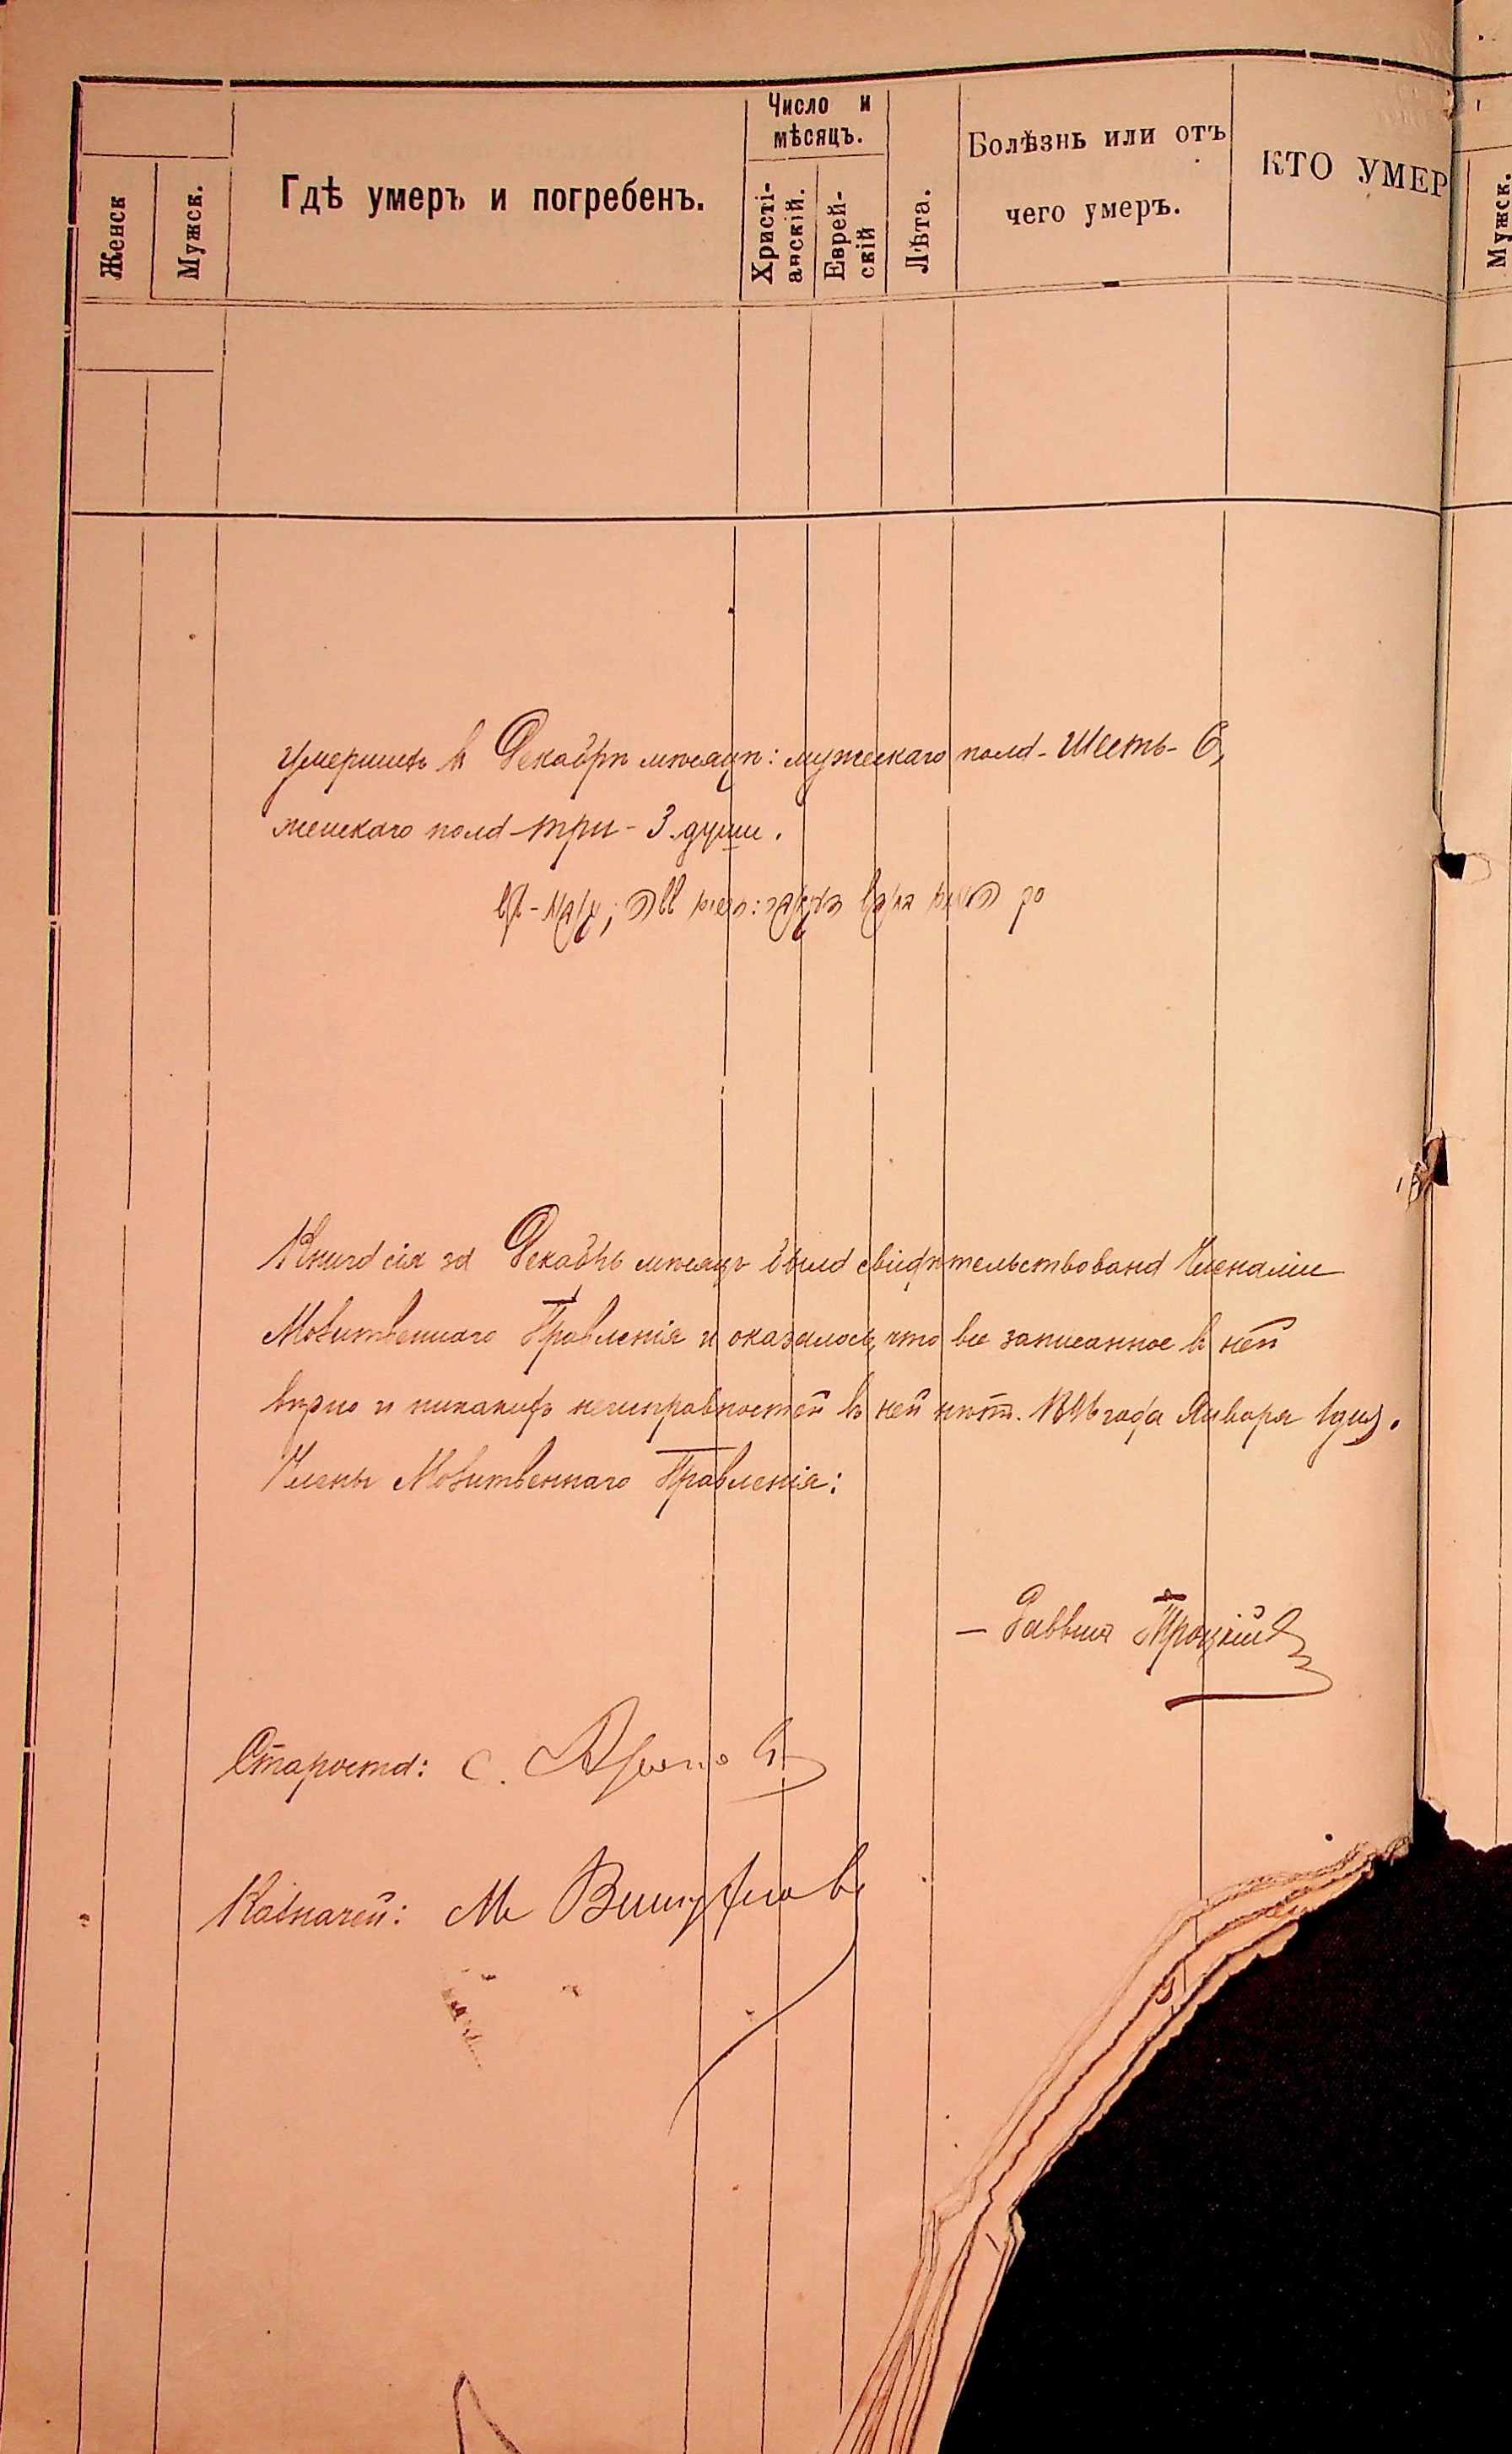 Женск
Мужск.
Гдѣ умеръ и погребенъ.
Число и
мѣсяцъ.
Христі-
анскій.
Еврей-
скій
Лѣта.
Болѣзнь или отъ
чего умеръ.
КТО УМЕР
Мужск.
Умершихъ въ Декабрѣ мѣсяцѣ: мужескаго пола - Шесть - 6,
женскаго пола - три - 3 души.
Книга сія за Декабрь мѣсяцъ была свидѣтельствована Членами
Молитвеннаго Правленія и оказалось, что все записанное въ ней
вѣрно и никакихъ неисправностей въ ней нѣтъ. 1896 года Января 1 дня.
Члены Молитвеннаго Правленія:
— Раввинъ Троцкій
Староста: С.
Казначей: М.